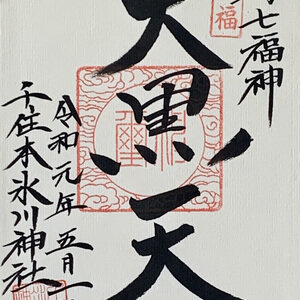 七福神
福
大黒天
令和元年五月一
千住本氷川神社